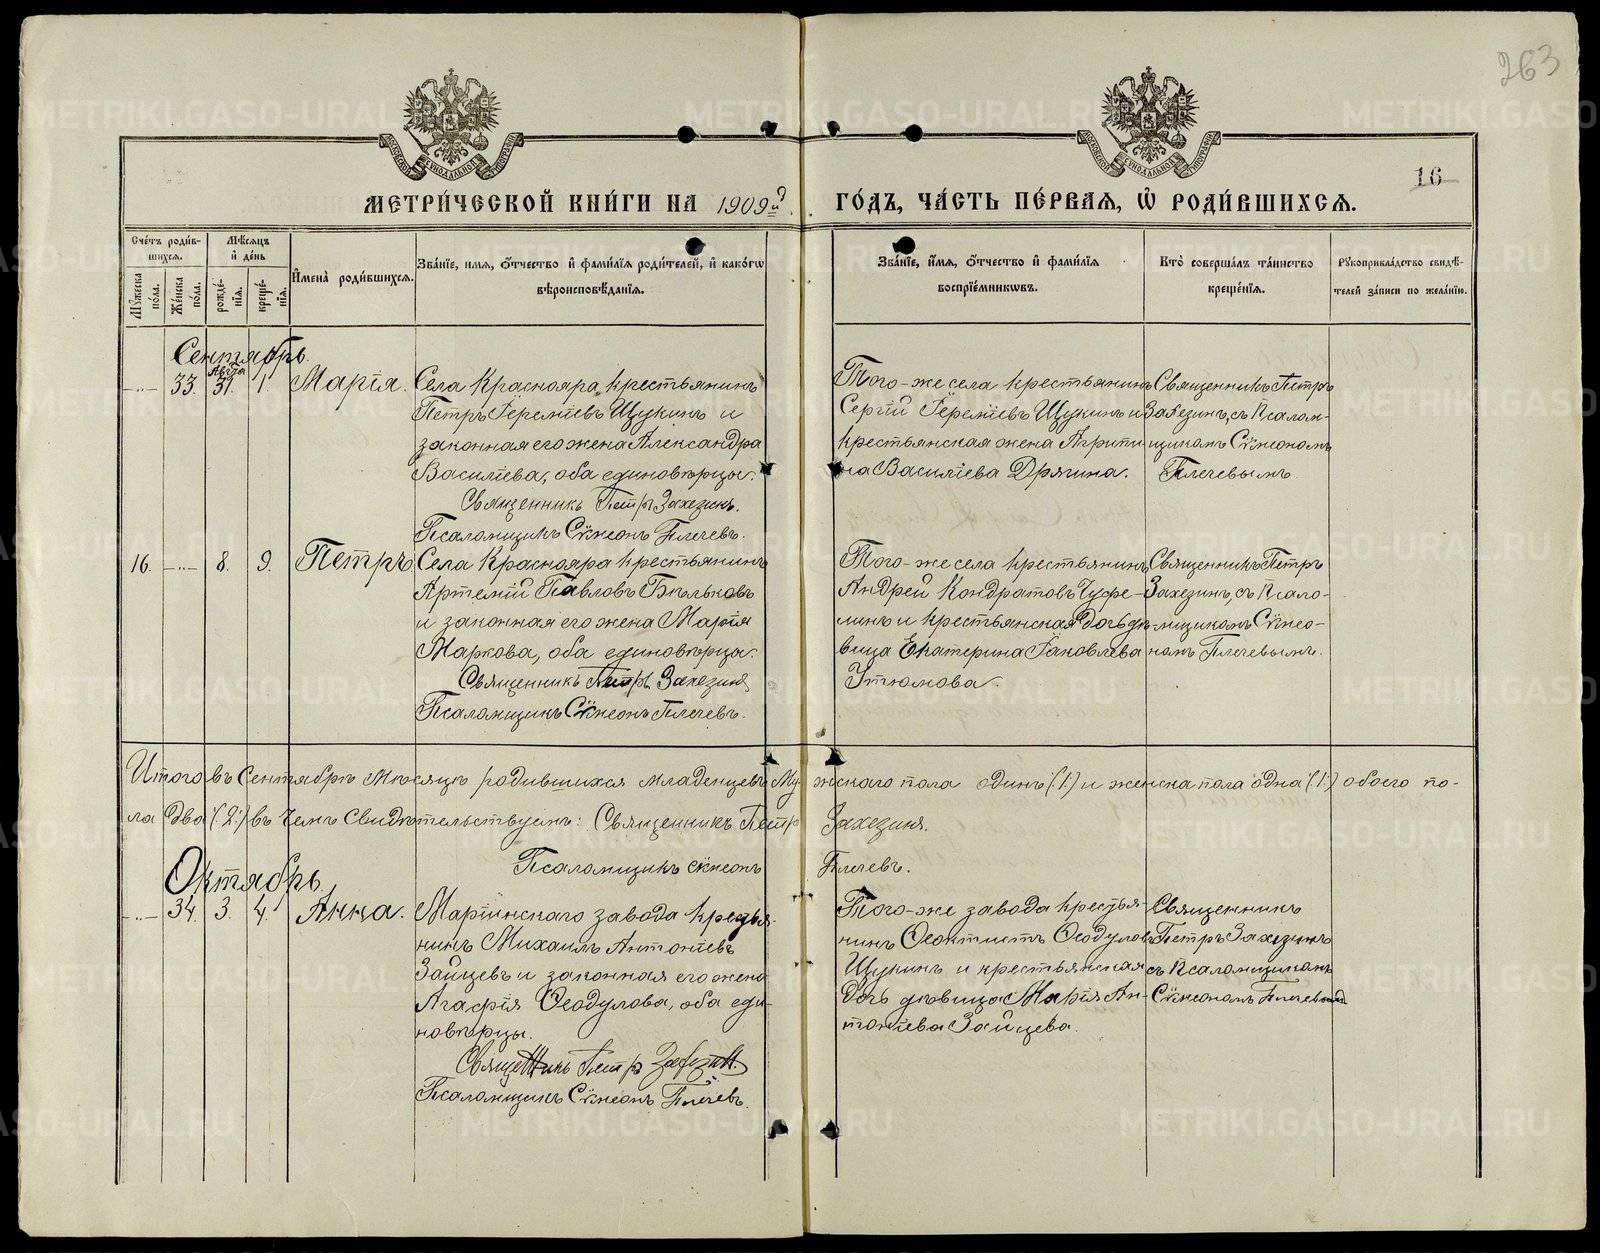 263
16
МЕТРИ́ЧЕСКОЙ КНИ́ГИ НА 1909й ГО́ДЪ, ЧА́СТЬ ПЕ́РВАѦ, Ѡ РОДИ́ВШИХСѦ.
Сче́тъ роди́в-
шихсѧ.
Мѣ́сѧцъ
и̂ де́нь
Мꙋ́жеска
по́ла.
Же́нска
по́ла.
рожде́-
нїѧ.
креще́-
нїѧ.
И̂мена̀ роди́вшихсѧ.
Зва́нїе, имѧ, о́тчество и̂ фами́лїѧ роди́телей, и̂ како́гѡ
вѣроисповѣ́данїѧ.
Зва́нїе, и́мѧ, о́тчество и̂ фами́лїѧ
воспрїе́мникѡвъ.
Кто̀ соверша́лъ та́инство
креще́нїѧ.
Рꙋкоприкла́дство свидѣ́-
телей за́писи по жела́нїю.
Сентябрь.
-..- 33. Авгта 31. 1. Марія.
Села Краснояра крестьянинъ
Петръ Геремiевъ Щукинъ и
законная его жена Александра
Василiева, оба единовѣрцы.
Священникъ Петръ Захезинъ.
Псаломщикъ Сѵмеонъ Плечевъ.
Того-же села крестьянинъ
Сергiй Геремiевъ Щукинъ и
крестьянская жена Агрипи-
на Василiева Дрягина.
Священникъ Петръ
Захезинъ, съ Псалом-
щикомъ Сѵмеономъ
Плечевымъ.
16. -..- 8. 9. Петръ
Села Краснояра крестьянинъ
Артемiй Павловъ Бѣльковъ
и законная его жена Марiя
Маркова, оба единовѣрца.
Священникъ Петръ Захезинъ
Псаломщикъ Сѵмеонъ Плечевъ.
Того-же села крестьянинъ
Андрей Кондратовъ
и крестьянская дочь дѣ-
вица Екатерина Iаковлева
Утюмова.
Священникъ Петръ
Захезинъ, съ Псало-
мщикомъ Сѵмео-
номъ Плечевымъ.
Итого въ Сентябрѣ мѣсяцѣ родившихся младенцевъ мужскаго пола одинъ (:1:) и женска пола одна (:1:) обоего по-
ла два (:2:) въ чемъ свидѣтельствуемъ: Священникъ Петръ Захезинъ.
Псаломщикъ Сѵмеонъ Плечевъ.
Октябрь.
-..- 34. 3. 4. Анна.
Марiинскаго завода крестья-
нинъ Михаилъ Антонiевъ
Зайцевъ и законная его жена
Агафiя Ѳеодулова, оба еди-
новѣрцы.
Священникъ Петръ Захезинъ
Псаломщикъ Сѵмеонъ Плечевъ.
Того-же завода крестья-
нинъ Ѳеоктистъ Ѳеодуловъ
Щукинъ и крестьянская
дочь дѣвица Марiя Ан-
тонiева Зайцева.
Священникъ
Петръ Захезинъ
съ Псаломщикомъ
Сѵмеономъ Плечевымъ
METRIKI.GASO-URAL.RU